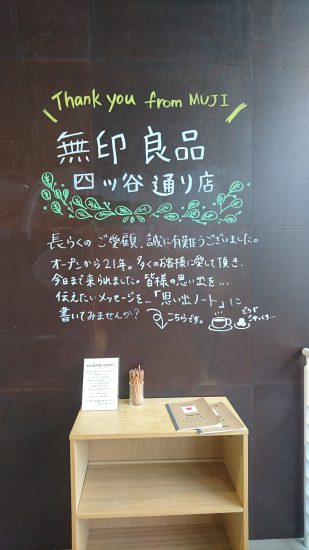 Thank you from MUJI
無印良品
四ツ谷通り店
長らくのご愛顧、誠に有難うございました。
オープンから21年。多くのお客様に愛して頂き、
今日まで来られました。皆様の思い出を…
伝えたいメッセージを…「思い出ノート」に
書いてみませんか? こちらです。
どうぞ